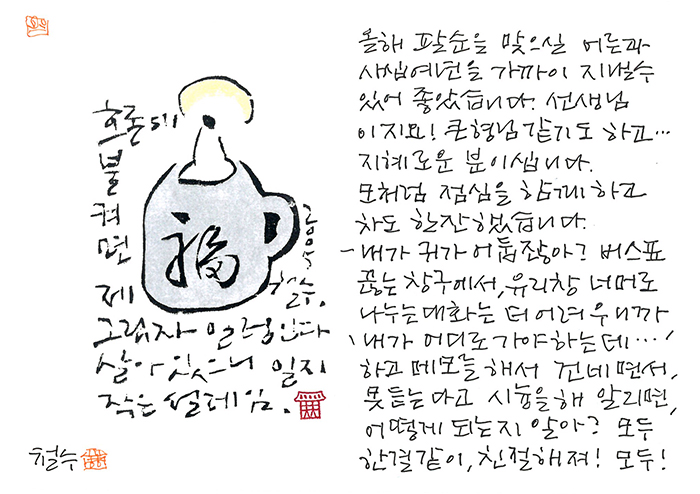 호롱에
불
켜
면
제
그림자 일렁인다
살아 있으니 일지
작은 설레임.
福
2005 철수.
철수
올해 팔순을 맞으실 어른과
사십여년을 가까이 지낼수
있어 좋았습니다. 선생님
이지요! 큰형님 같기도 하고…
지혜로운 분이십니다.
모처럼 점심을 함께하고
차도 한잔 했습니다.
-내가 귀가 어둡잖아? 버스표
끊는 창구에서, 유리창 너머로
나누는 대화는 더 어려우니까
'내가 어디로 가야하는데…'
하고 메모를 해서 건네면서,
못듣는다고 시늉을해 알리면,
어떻게 되는지 알아? 모두
한결같이, 친절해져! 모두!